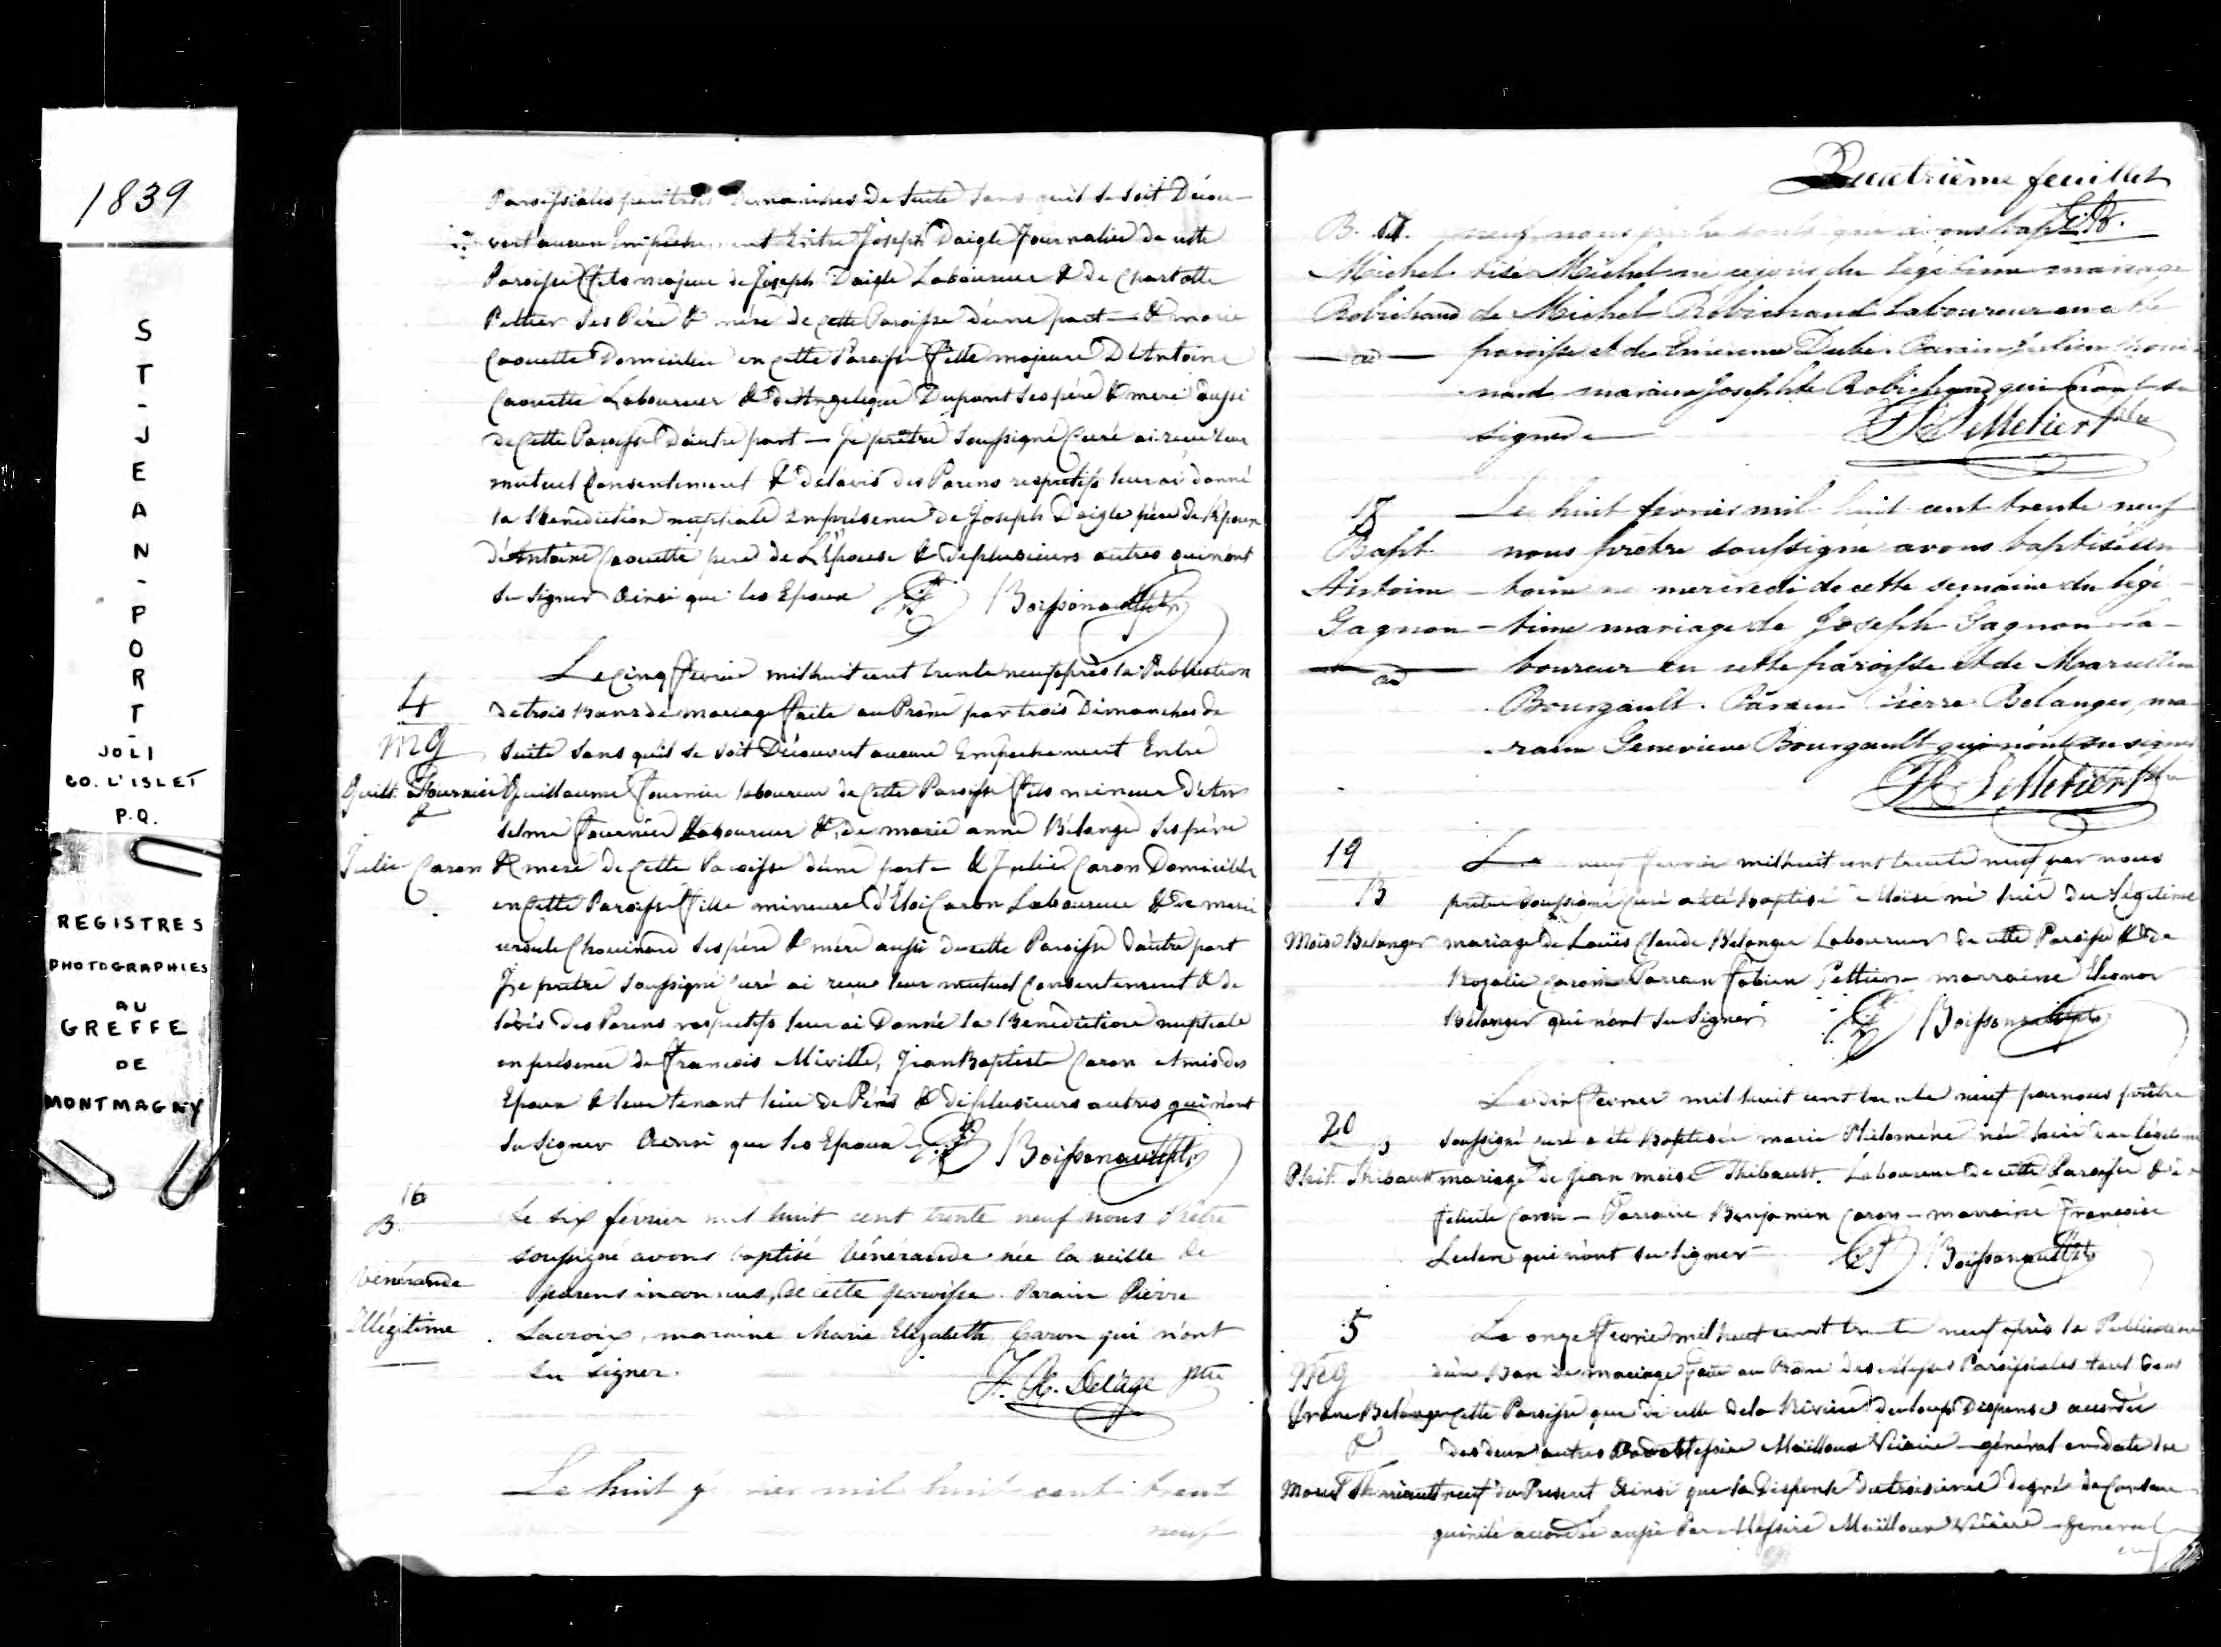 1839
ST-JEAN-PORT-
JOLI
CO. L'ISLET
P.Q.
REGISTRES
PHOTOGRAPHIES
AU
GREFFE
DE
MONTMAGNY
Paroissiales trois dimanches de Suite Sans qu'il se soit Décou-
vert aucun Empêchement Entre Joseph Daigle Journalier de cette
Paroisse fils majeur de Joseph Daigle Laboureur & de Charlotte
Peltier Ses Père & mère de cette Paroisse d'une part — & marie
Caouette Domiciliée en cette Paroisse fille majeure D'Antoine
Caouette Laboureur & d'Angelique Dupont ses père & mere aussi
de cette Paroisse d'autre part — Je prêtre Soussigné Curé ai reçu leur
mutuel Consentement & de l'avis des Parens respectifs leur ai donné
la Bénédiction nuptiale en présence de Joseph Daigle père de l'Epoux
d'Antoine Caouette pere de L'Epouse & de plusieurs autres qui n'ont
su signer Ainsi que les Epoux Boissonnault Ptr
4
MG
Guill. Fournier
&
Julie Caron
Le Cinq Février mil huit cent trente neuf après la Publication
de trois Bans de mariage faite au Prône par trois Dimanches de
Suite Sans qu'il se soit Découvert aucun Empechement Entre
Guillaume Fournier laboureur de cette Paroisse fils mineur d'An-
selme Fournier Laboureur & de marie anne Bélanger Ses père
& mere de cette Paroisse d'une part — & Julie Caron Domiciliée
en cette Paroisse fille mineure d'Eloi Caron Laboureur & de marie
ursule Chouinard Ses père & mère aussi de cette Paroisse d'autre part
Je prêtre soussigné Curé ai reçu leur mutuel Consentement & de
l'avis des Parens respectifs leur ai Donné la Bénédiction nuptiale
en présence de François Miville, Jean Baptiste Caron Amis des
Epoux & leur tenant lieu de Pères & de plusieurs autres qui n'ont
su signer Ainsi que les Epoux Boissonnault Ptr
16
B.
Vénérande
Illégitime
Le six février mil huit cent trente neuf nous Prêtre
soussigné avons baptisé Vénérande née la veille de
parens inconnus, de cette paroisse. Parain Pierre
Lacroix, maraine Marie Elizabeth Caron qui n'ont
su signer.
Delage ptre
Le huit février mil huit cent trent
neuf
Quatrième feuillet
B.
Michel
Robichaud
neuf, nous prêtre souss. avons bap
tisé Michel né ce jour du légitime mariage
de Michel Robichaud laboureur en cette
paroisse et de Dubé. Parain Julien Choui-
nard maraine Josephte Robichaud qui n'ont su
signer
Pelletier Ptre
18
Bapt.
Antoine
Gagnon
Le huit février mil huit cent trente neuf
nous prêtre soussigné avons baptisé An-
toine né mercredi de cette semaine du légi-
time mariage de Joseph Gagnon la-
boureur en cette paroisse et de Marcelline
Bourgault. Parain Pierre Belanger, ma-
raine Genevieve Bourgault qui n'ont su signer
Pelletier Ptre
19
B
Moïse Belanger
Le neuf fevrier mil huit cent trente neuf par nous
prêtre soussigné Curé a été baptisé Moïse né hier du légitime
mariage de Louis Claude Belanger Laboureur de cette Paroisse & de
Rozalie Caron Parrain Fabien Peltier — marraine Eleonor
Belanger qui n'ont su signer Boissonnault Ptr
20
B
Phil. Thibault
Le dix Fevrier mil huit cent trente neuf par nous prêtre
soussigné curé a été Baptisée marie Philomène née hier du légitime
mariage de Jean moïse Thibault. Laboureur de cette Paroisse & de
Felicite Caron — Parrain Benjamin Caron — marraine Françoise
Leclerc qui n'ont su signer Boissonnault Ptr
5
MG
Frans Belanger
&
Marie Thériault
Le onze Fevrier mil huit cent trente neuf après la Publication
d'un Ban de mariage faite au Prône des Messes Paroissiales tant dans
cette Paroisse que de celle de la Rivière du loup Dispense accordée
des deux autres Messire Mailloux Vicaire-général en date du
neuf du Présent Ainsi que la Dispense du troisième degré de Consan-
guinité accordée aussi Par Messire Mailloux Vicaire-General